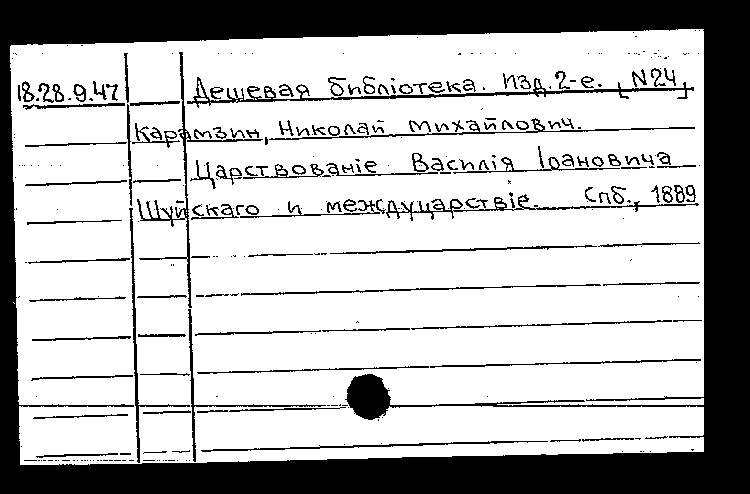 18.28.9.47 Дешевая библіотека. Изд. 2-е. [N24]
Карамзин, Николай Михайлович.
Царствованіе Василія Іоановича
Шуйскаго и междуцарствіе. Спб., 1889